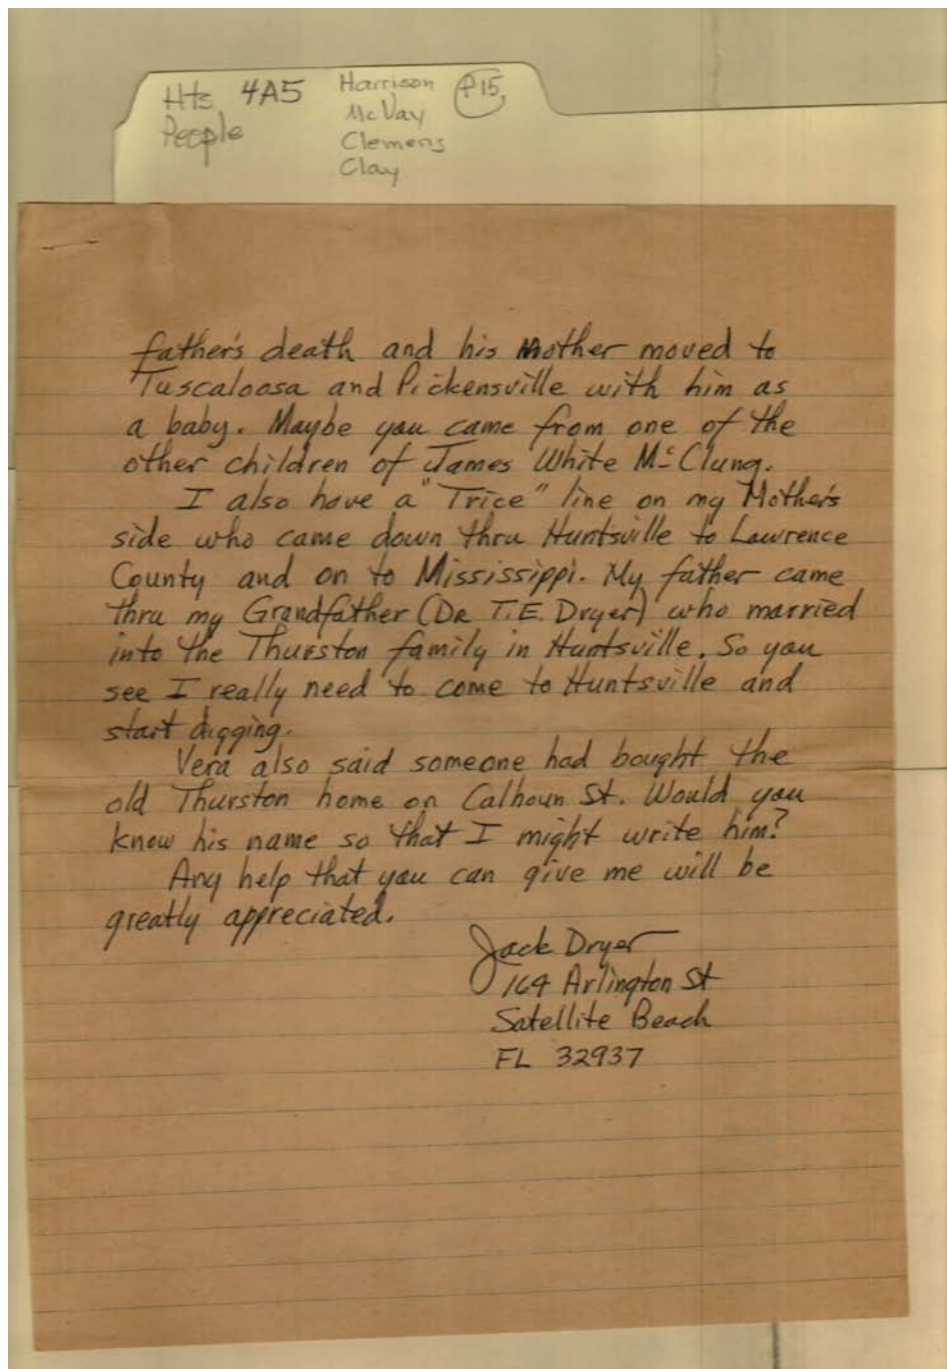 Hts 4A5 Harrison P15
People McVay
Clemens
Clay
father's death and his Mother moved to
Tuscaloosa and Pickensville with him as
a baby. Maybe you came from one of the
other children of James White McClung.
I also have a "Trice" line on my Mother's
side who came down thru Huntsville to Lawrence
County and on to Mississippi. My father came
thru my Grandfather (Dr T.E. Dryer) who married
into the Thurston family in Huntsville. So you
see I really need to come to Huntsville and
start digging.
Vera also said someone had bought the
old Thurston home on Calhoun St. Would you
know his name so that I might write him?
Any help that you can give me will be
greatly appreciated.
Jack Dryer
164 Arlington St
Satellite Beach
FL 32937